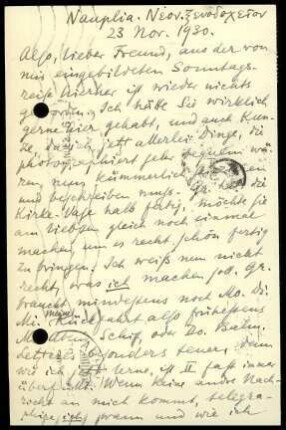 Nauplia. Νέον Ξενοδοχεῖον
23 Nov. 1930.
Also, lieber Freund, aus der von
mir eingebildeten Sonntags-
reise hierher ist wieder nichts
geworden. Ich hätte Sie wirklich
gerne hier gehabt, und auch Kun-
ze, da ich jetzt allerlei Dinge, die
photographiert sehr bequem wä-
ren, nun kümmerlich
und beschreiben muss. Gr. hat die
Kirke-Vase halb fertig, möchte sie
am liebsten gleich noch einmal
machen um es recht schön fertig
zu bringen. Ich weiß nun nicht
recht, was ich machen soll. Gr.
braucht mindestens noch Mo. Di.
Mi. Rückfahrt also frühestens
Schiff, oder Do. Bahn.
letzteres besonders teuer, denn
wie ich jetzt lerne, ist II fast immer
überfüllt. Wenn keine andre Nach-
richt an mich kommt, telegra-
phiere ich wann und wie ich